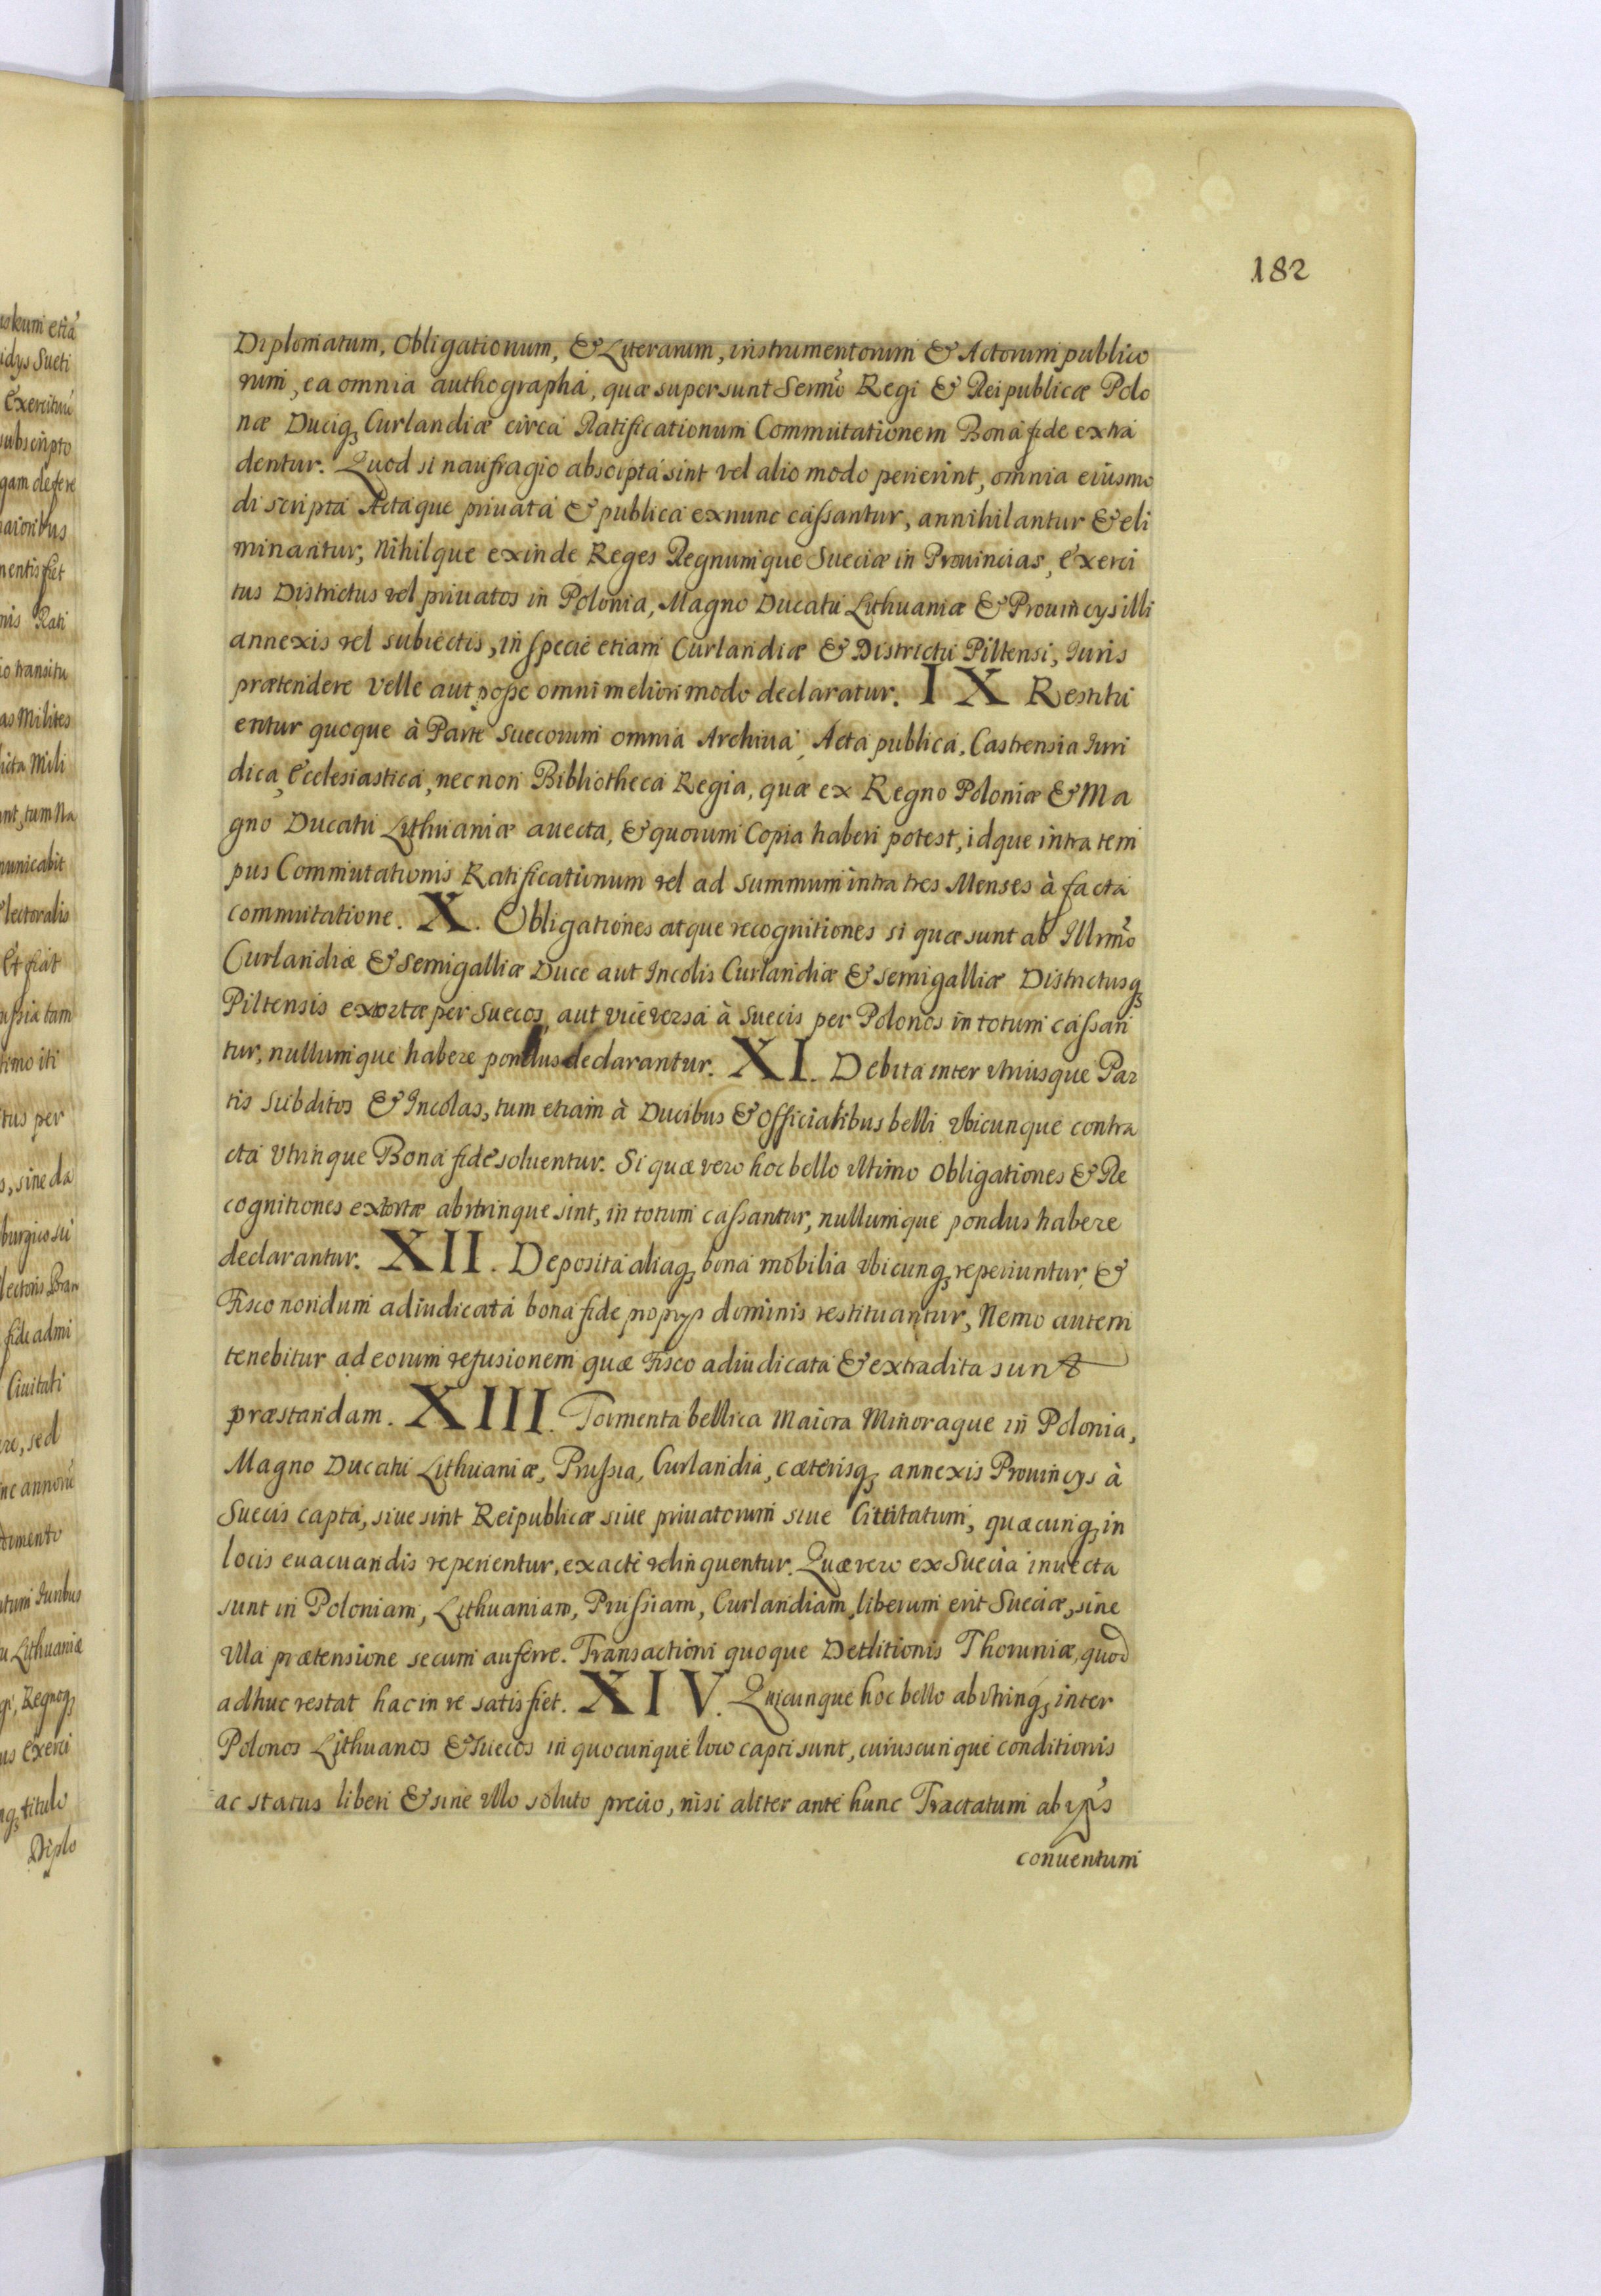 182
Diplomatum, Obligationum, & Literarum, instrumentorum & Actorum publico
rum, ea omnia authographa, quæ supersunt Sermo Regi & Reipublicæ Polo
næ Duciq; Curlandiæ circa Ratificationum Commutationem Bona fide extra
dentur. Quod si naufragio abscipta sint vel alio modo perierint, omnia eiusmo
di scripta Actaque priuata & publica exnunc cassantur, annihilantur & eli
minantur; Nihilque exinde Reges Regnumque Sueciæ in Prouincias, Exerci
tus Districtus vel priuatos in Polonia, Magno Ducatu Lithuaniæ & Prouincys illi
annexis vel subiectis, in specie etiam Curlandiæ & Districtu Piltensi, Iuris
prætendere velle aut posse omni meliori modo declaratur. IX Restitu
entur quoque à Parte Suecorum omnia Archiua, Acta publica, Castrensia Iuri
dica, Ecclesiastica, necnon Bibliotheca Regia, quæ ex Regno Poloniæ & Ma
gno Ducatu Lithuaniæ auecta, & quorum Copia haberi potest, idque intra tem
pus Commutationis Ratificationum vel ad summum intra tres Menses à facta
commutatione. X. Obligationes atque recognitiones si quæ sunt ab Illrmo
Curlandiæ & Semigalliæ Duce aut Incolis Curlandiæ & Semigalliæ Districtusq;
Piltensis extortæ per Suecos, aut viceversa à Suecis per Polonos in totum cassan
tur, nullumque habere pondus declarantur. XI. Debita inter vtriusque Par
tis subditos & Incolas, tum etiam à Ducibus & Officialibus belli vbicunque contra
cta vtrinque Bona fide soluentur. Si quæ vero hoc bello vltimo Obligationes & Re
cognitiones extortæ abvtrinque sint, in totum cassantur, nullumque pondus habere
declarantur. XII. Deposita aliaq; bona mobilia vbicunq; reperiuntur, &
Fisco nondum adiudicata bona fide proprys dominis restituantur, Nemo autem
tenebitur ad eorum refusionem quæ Fisco adiudicata & extradita sunt
præstandam. XIII. Tormenta bellica Maiora Minoraque in Polonia,
Magno Ducatu Lithuaniæ, Prussia, Curlandia, cæterisq; annexis Prouincys à
Suecis capta, siue sint Reipublicæ siue priuatorum siue Ciuitatum, quæcunq; in
locis euacuandis reperientur, exacte relinquentur. Quæ vero ex Suecia inuecta
sunt in Poloniam, Lithuaniam, Prussiam, Curlandiam, liberum erit Sueciæ, sine
vlla prætensione secum auferre. Transactioni quoque Deditionis Thoruniæ, quod
adhuc restat hac in re satisfiet. XIV. Quicunque hoc bello abvtrinq; inter
Polonos Lithuanos & Suecos in quocunque loco capti sunt, cuiuscunque conditionis
ac status liberi & sine vllo soluto precio, nisi aliter ante hunc Tractatum ab ipsis
conuentum